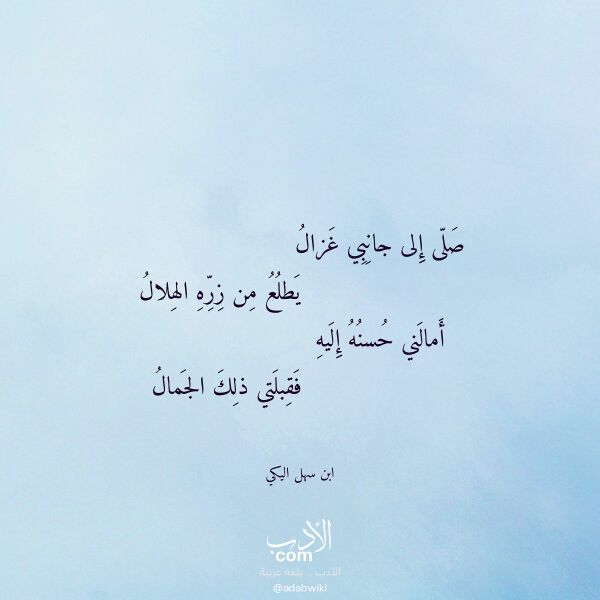 صَلّى إِلى جانِبِي غَزالُ
يَطلُعُ مِن زِرِّهِ الهِلالُ
أَمالَني حُسنُهُ إِلَيهِ
فَقِبلَتي ذلِكَ الجَمالُ
ابن سهل اليكي
الأدب
com
الأدب .. بلغة عربية
@adabwiki